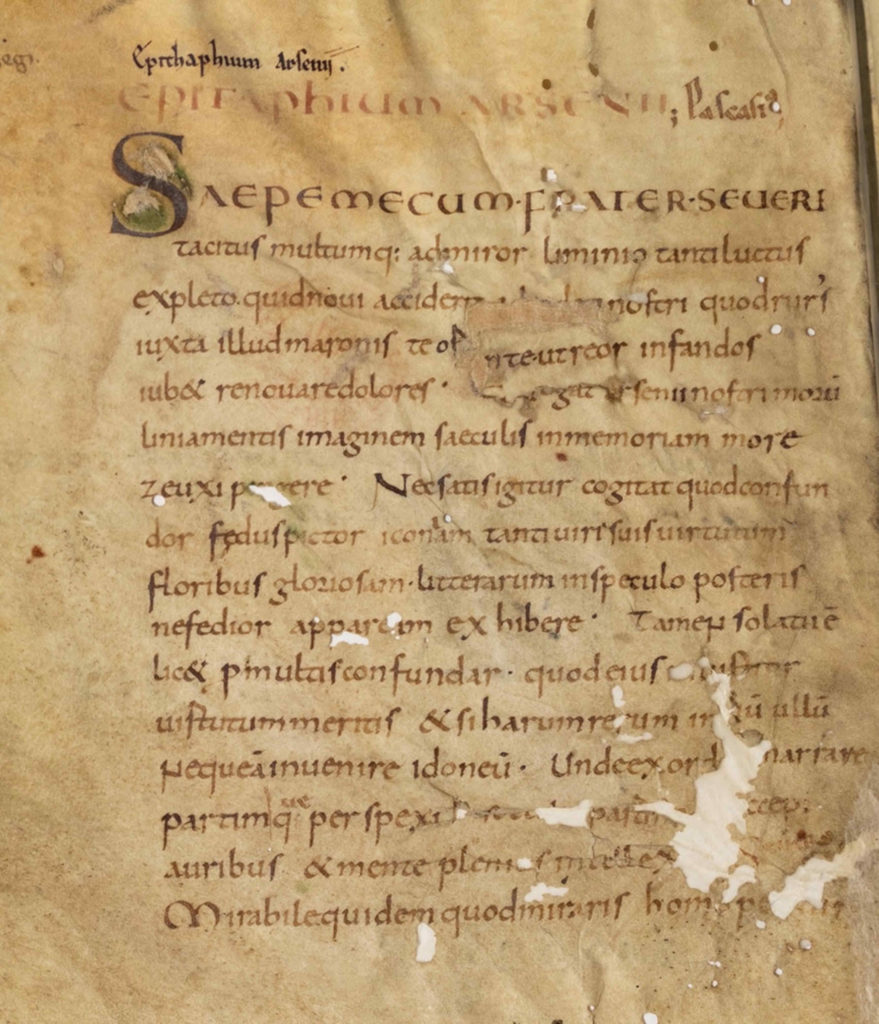 Epithaphium Arsenii.
EPITAPHIUM ARSENII; Pascasii
SAEPE MECUM·FRATER·SEUERI
tacitus multumq: admiror liminio tanti luctus
expleto. quid noui nostri quod rursus
iuxta illud maronis te ut reor infandos
iub& renouare dolores· arsenii nostri morū
liniamentis imaginem saeculis in memoriam more
zeuxi · Nec satis igitur cogitat quod confun
dor fędus pictor iconiam tanti uiri suis uirtutum
floribus gloriosam·litterarum in speculo posteris
ne fedior appaream exhibere· Tamen solatū ē
lic& p multis confundar· quod eius
uirtutum meritis & si harum rerum ullū
neque ā inuenire idoneū· Unde narrare
partimq: que perspexi
auribus & mente plenius
Mirabile quidem quod miraris